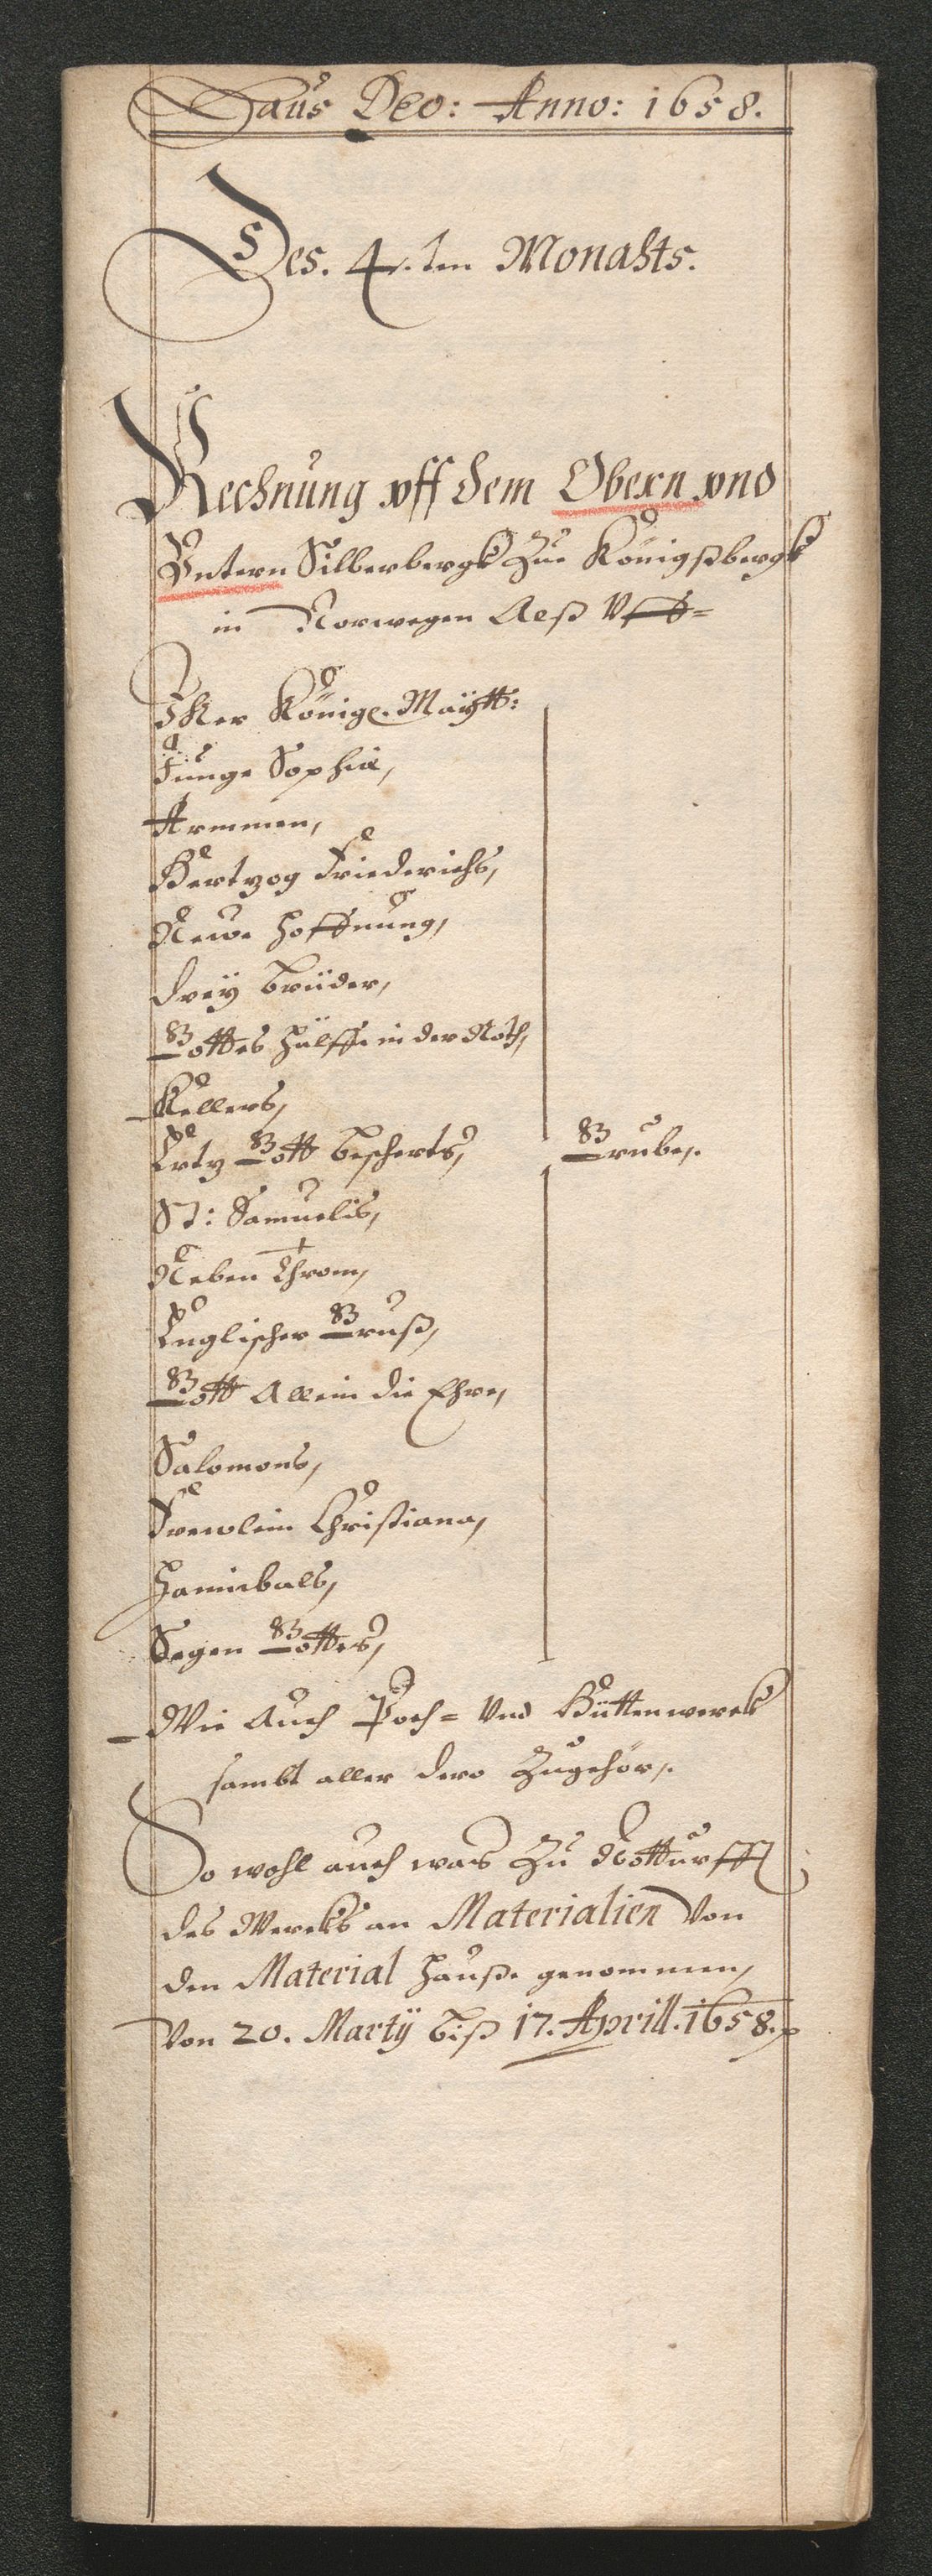 Laus Deo: Anno: 1658.
Des. 4.ten Monahts.
Rechnung vff dem Obern vnd
Vntern Silberbergk Zue Königßbergk
in Norwegen Alß Vff=
Iher Königl. Maÿtt:
Junge Sophia,
Armmen,
Hertzog Friederichs,
Newe Hoffnung,
dreÿ brüder,
Gottes Hülffe in der Noth,
Kellers,
Ertz Gott bescherts, Grube,.
St: Samuelis,
Neben Throm,
Englischer Gruß,
Gott Allein die Ehre,
Salomons,
Frewlein Christiana,
Hannibals,
Segen Gottes,
Wie Auch Poch= Vnd Hüttenwerck
sambt aller dero Zugehör,.
So wohl auch was Zu Notturfft
des Wercks an Materialien Von
den Material Hauße genommen,
Von 20. Martÿ biß 17. Aprill. 1658.